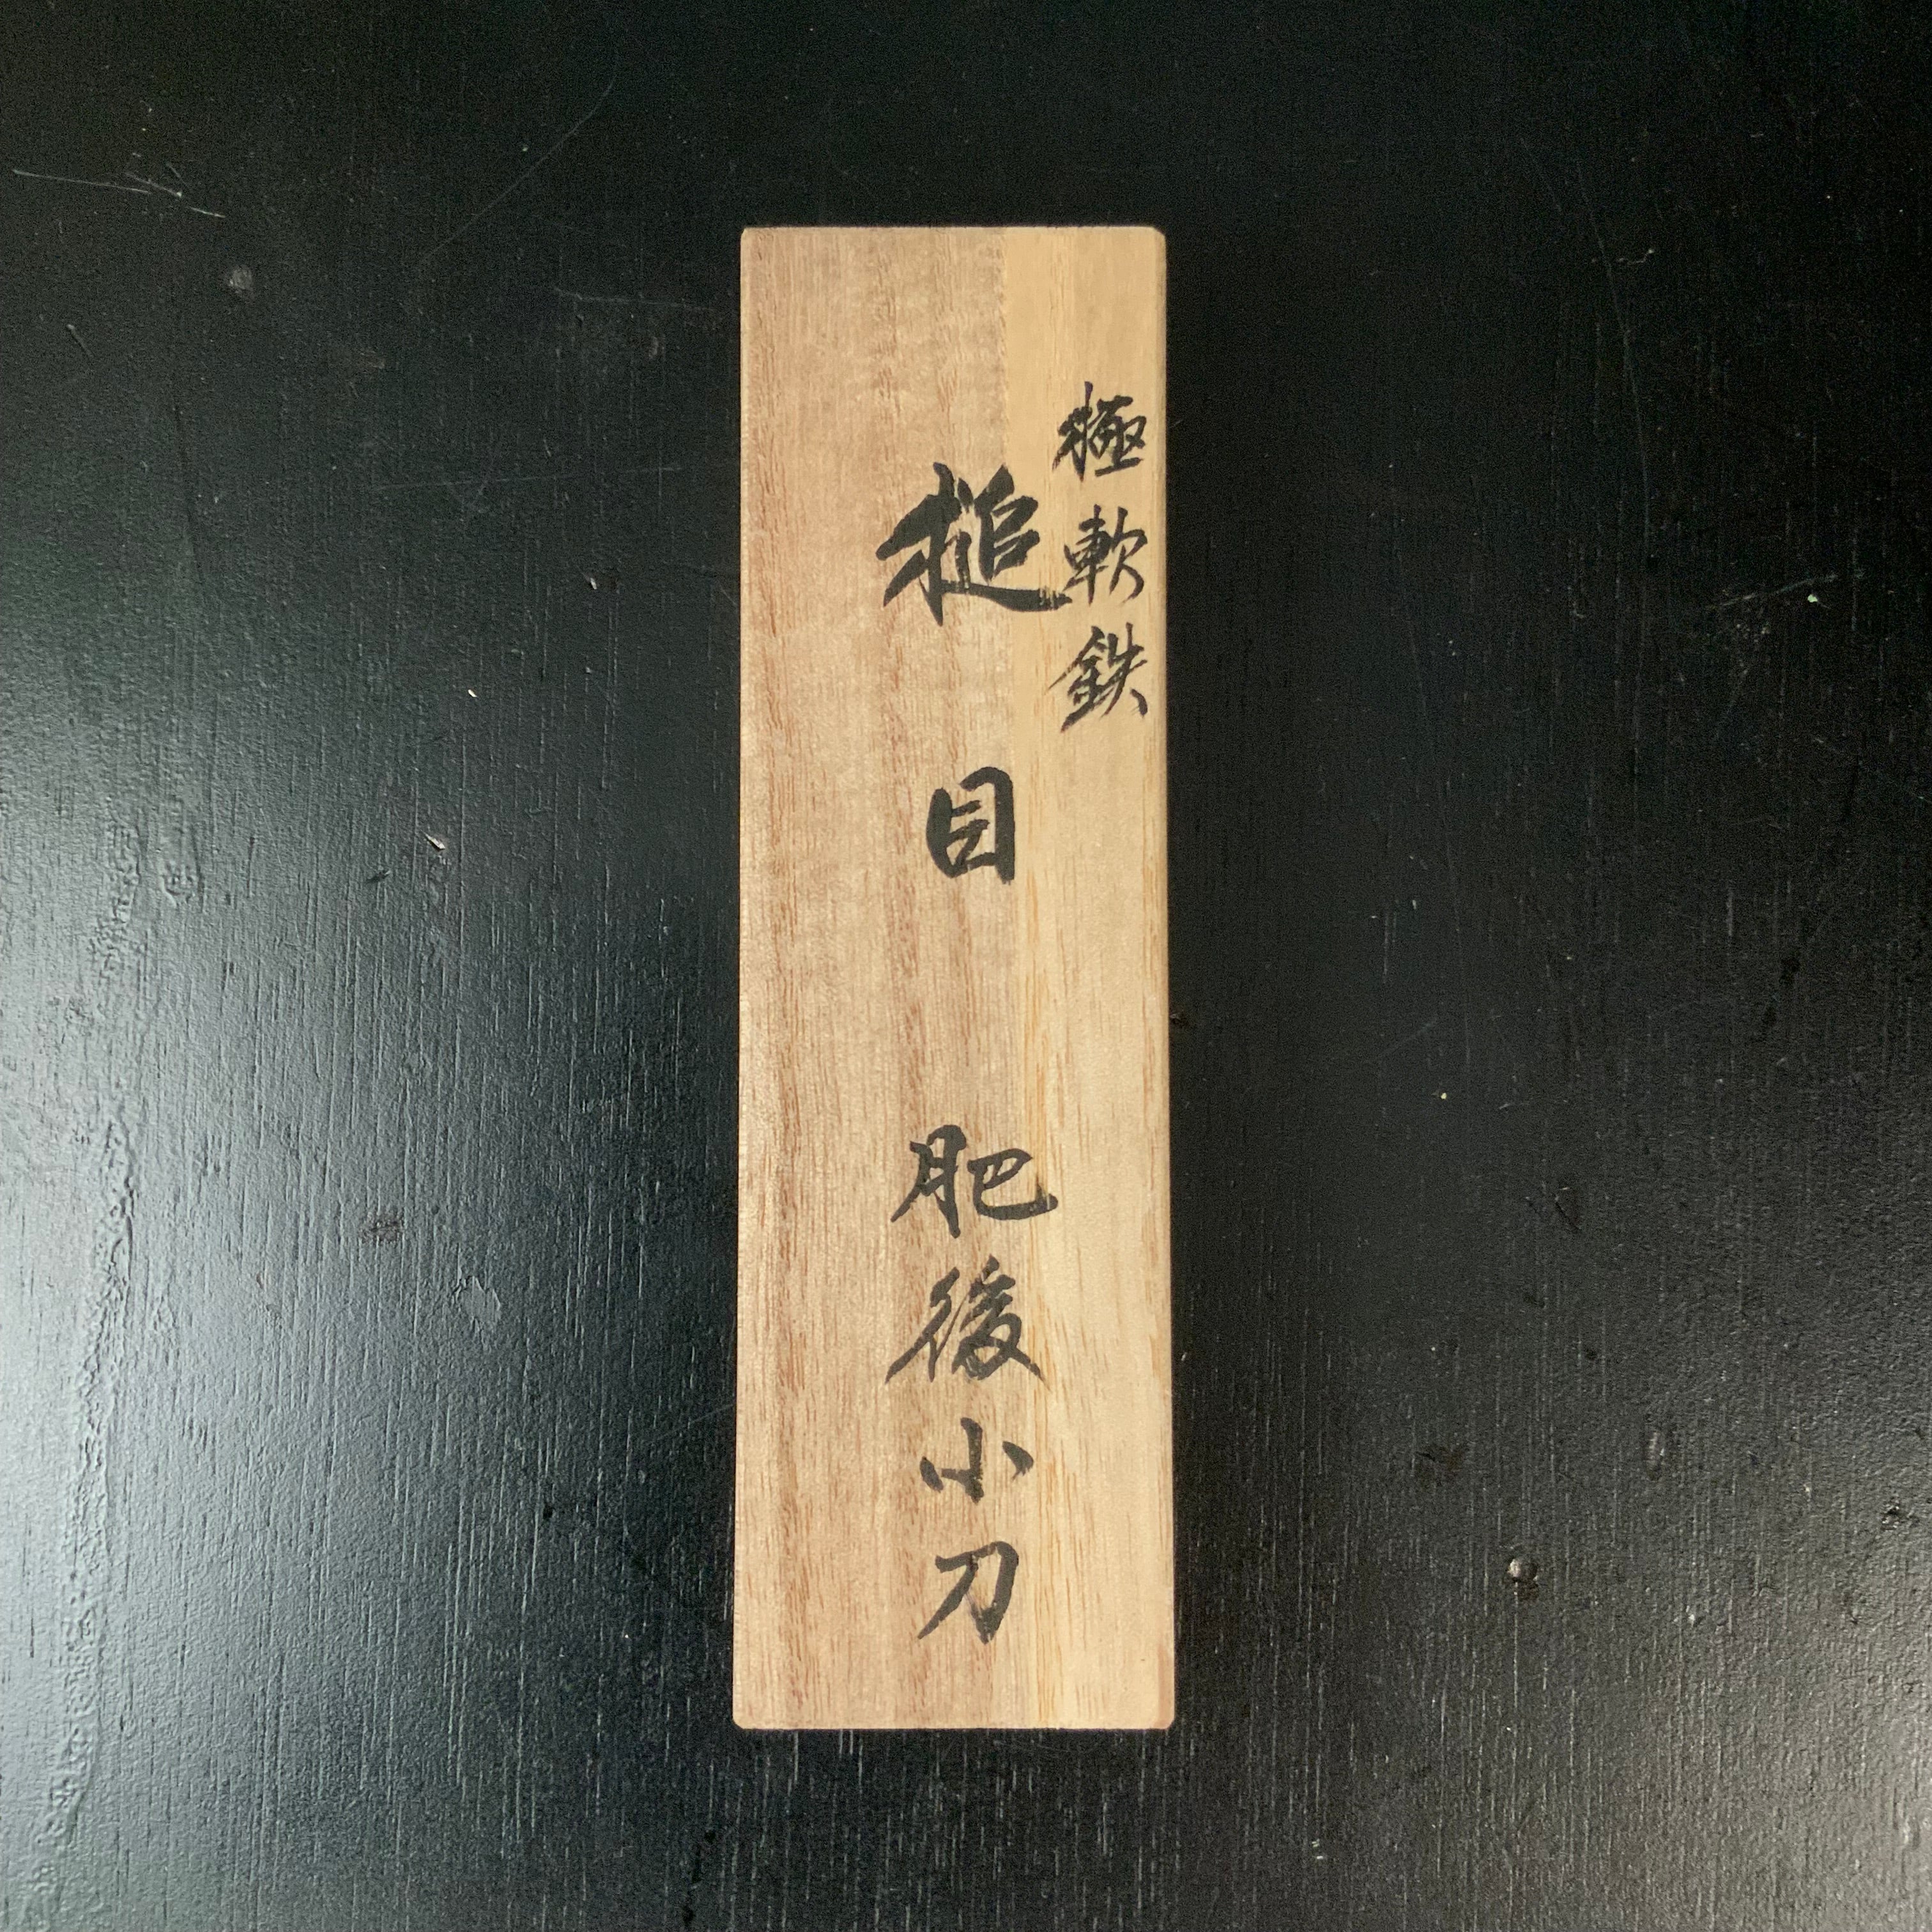 極軟鉄
槌目 肥後小刀